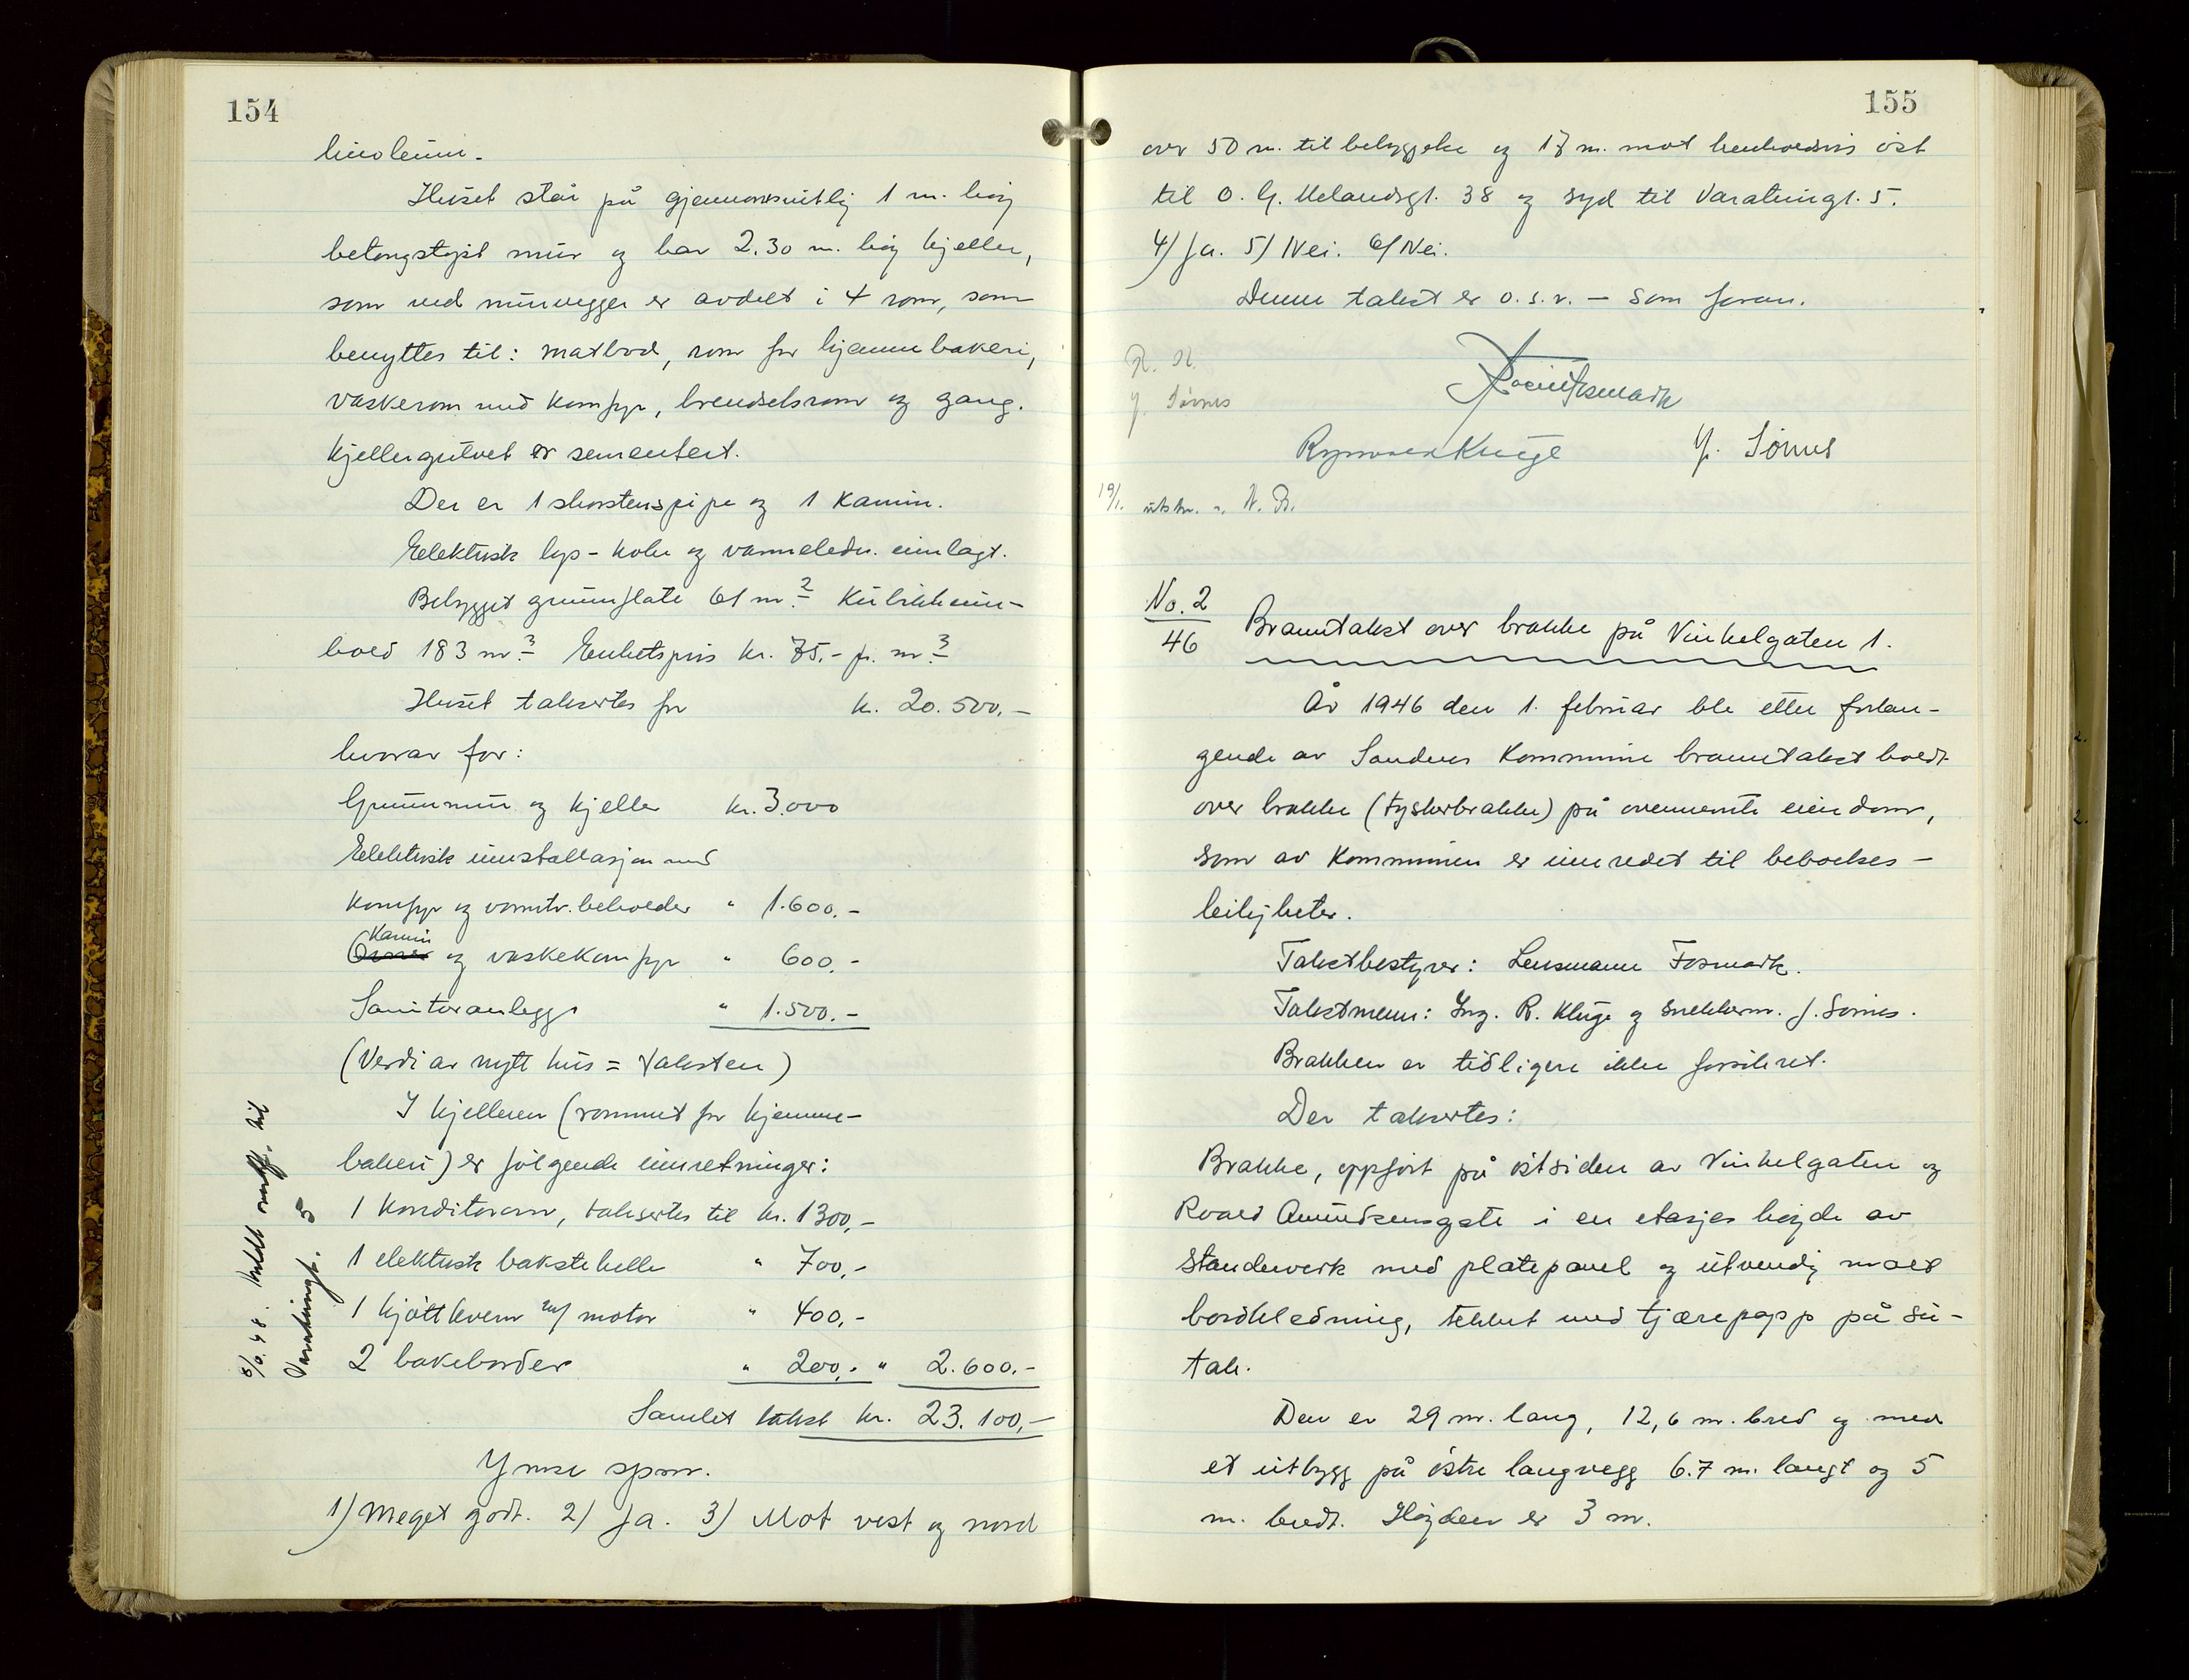 154
linoleum.
Huset står på gjennomsnitlig 1 m. høy
betongstøpt mur og har 2.30 m. høy kjeller,
som ved murvegger er avdelt i 4 rom, som
benyttes til: matbod, rom for hjemmebakeri,
vaskerom med komfyr, brendselsrom og gang.
Kjellergulvet er sementert.
Der er 1 skorstenspipe og 1 kamin.
Elektrisk lys- koke og vannledn. innlagt.
Bebygget grunnflate 61 m.² Kubikkinn-
hold 183 m.³ Enhetspris kr. 75.- pr. m.³
Huset takseres for kr. 20.500,-
hvorav for:
Grunnmur og kjeller kr. 3.000
Elektrisk innstallasjon med
komfyr og varmtv.beholder " 1.600.-
Kamin
Ovner og vaskekomfyr " 600.-
Sanitoranlegg " 1.500.-
(Verdi av nytt hus = taksten)
I kjelleren (rommet for hjemme-
bakeri) er følgende innretninger:
1 Konditorovn, takseres til kr. 1300,-
1 elektrisk bakstehelle " 700,-
1 kjøttkvern m/ motor " 400,-
2 bakeborder " 200,- " 2.600.-
Samlet takst kr. 23.100,-
Ymse spm.
1) Meget godt. 2) Ja. 3) Mot vest og nord
Varatningt. 5
155
over 50 m. til bebyggelse og 18 m. mot henholdsvis øst
til O. G. Melandsgt. 38 og syd til Varatningt. 5.
4) Ja. 5) Nei. 6) Nei.
Denne takst er o.s.v. — som foran.
R. K.
J. Sörnes
Fosmark
Kluge J. Sörnes
19/1. utskr. s. N. B.
No. 2
46
Branntakst over brakke på Vinkelgaten 1.
År 1946 den 1. februar ble etter forlan-
gende av Sandnes Kommune branntakst holdt
over brakke (tyskerbrakke) på ovennemte eiendom,
som av Kommunen er innredet til beboelses-
leiligheter.
Takstbestyrer: Lensmann Fosmark.
Takstmenn: Ing. R. Kluge og snekkerm. J. Sörnes.
Brakken er tidligere ikke forsikret.
Der takseres:
Brakke, oppført på østsiden av Vinkelgaten og
Roald Amundsensgate i en etasjes høyde av
standerverk med platepanel og utvendig malt
bordkledning, tekket med tjærepapp på su-
tak.
Den er 29 m. lang, 12,6 m. bred og med
et utbygg på østre langvegg 6.7 m. langt og 5
m. bredt. Høyden er 3 m.